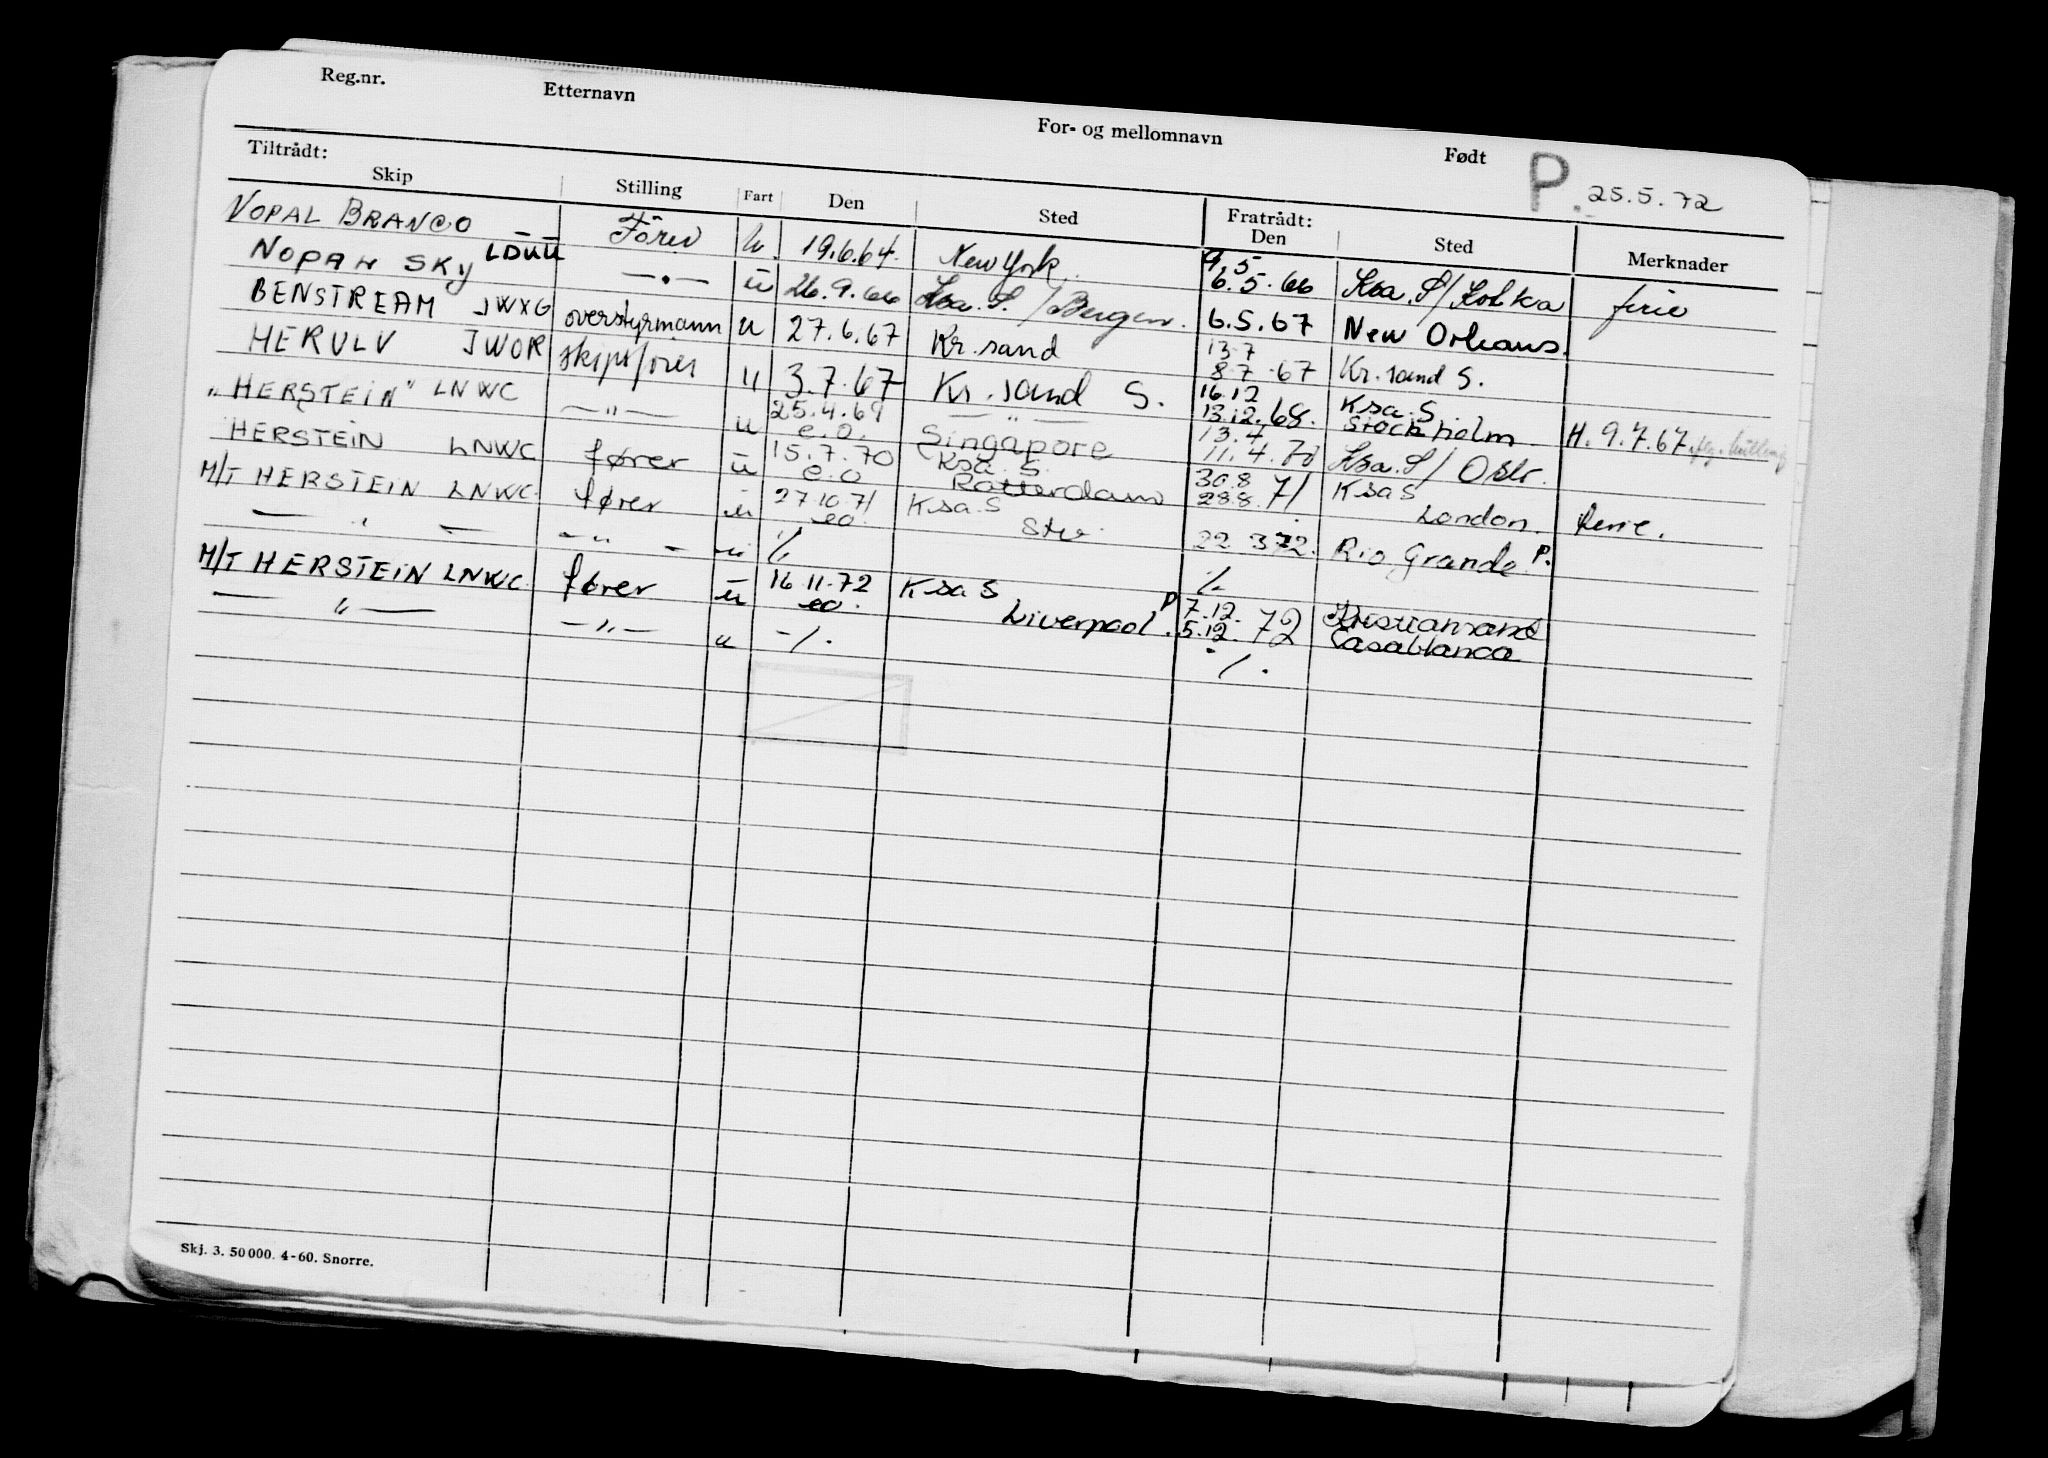 Reg.nr. Etternavn For- og mellomnavn Født P. 25.5.72
Tiltrådt: Fratrådt:
Skip Stilling Fart Den Sted Den Sted Merknader
NOPAL BRANCO Förer u 19.6.64. New York 9.5 6.5.66 Ksa. S/ ferie
NOPAL SKY LDUU —.— u 26.9.66 Ksa. S. / Bergen. 6.5.67 New Orleans.
BENSTREAM JWXG overstyrmann u 27.6.67 Kr. sand 13.7 8.7.67 Kr. sand S.
HERULV JWOR skipsfører u 3.7.67 Kr. sand S. 16.12 13.12.68. Ksa. S. Stockholm H. 9.7.67.
"HERSTEIN" LNWC —"— u 25.4.69 e.o. —"— Singapore 13.4 11.4.70 Ksa. S/
HERSTEIN LNWC fører u 15.7.70 e.o Ksa. S. Rotterdam 30.8 28.8. 71 Ksa S London. ferie.
M/T HERSTEIN LNWC. fører u 27.10.71 eo. Ksa. S 22.3.72. Rio Grande P.
— " — —"— u ·/. ·/.
M/T HERSTEIN LNWC. fører u 16.11.72 eo. Ksa S Liverpool P. 7.12. 5.12. 72 Kristiansand Casablanca
— " — —"— u -/. ·/.
Skj. 3. 50 000. 4-60. Snorre.